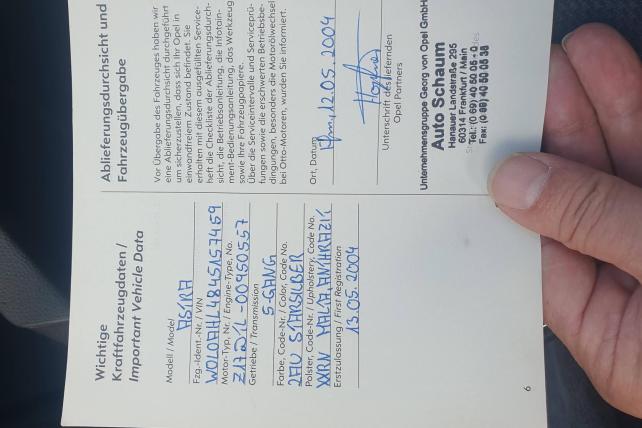 Wichtige
Kraftfahrzeugdaten /
Important Vehicle Data
Modell / Model
ASTRA
Fzg.-Ident.-Nr. / VIN
W0L0AHL4845157459
Motor-Typ, Nr. / Engine-Type, No.
Z17DTL-00950557
Getriebe / Transmission
5-GANG
Farbe, Code-Nr. / Color, Code No.
2AU STARSILBER
Polster, Code-Nr. / Upholstery, Code No.
Erstzulassung / First Registration
13.05.2004
6
Ablieferungsdurchsicht und
Fahrzeugübergabe
Vor Übergabe des Fahrzeuges haben wir
eine Ablieferungsdurchsicht durchgeführt
um sicherzustellen, dass sich Ihr Opel in
einwandfreiem Zustand befindet. Sie
erhalten mit diesem ausgefüllten Service-
heft die Checkliste der Ablieferungsdurch-
sicht, die Betriebsanleitung, die Infotain-
ment-Bedienungsanleitung, das Werkzeug
sowie Ihre Fahrzeugpapiere.
Über die Serviceintervalle und Serviceprü-
fungen sowie die erschwerten Betriebsbe-
dingungen, besonders die Motorölwechsel
bei Otto-Motoren, wurden Sie informiert.
Ort, Datum
12.05.2004
Unterschrift des liefernden
Opel Partners
Unternehmensgruppe Georg von Opel GmbH
Auto Schaum
Hanauer Landstraße 295
60314 Frankfurt / Main
Tel.: (0 69) 40 50 05 - 0
Fax: (0 69) 40 50 05 38